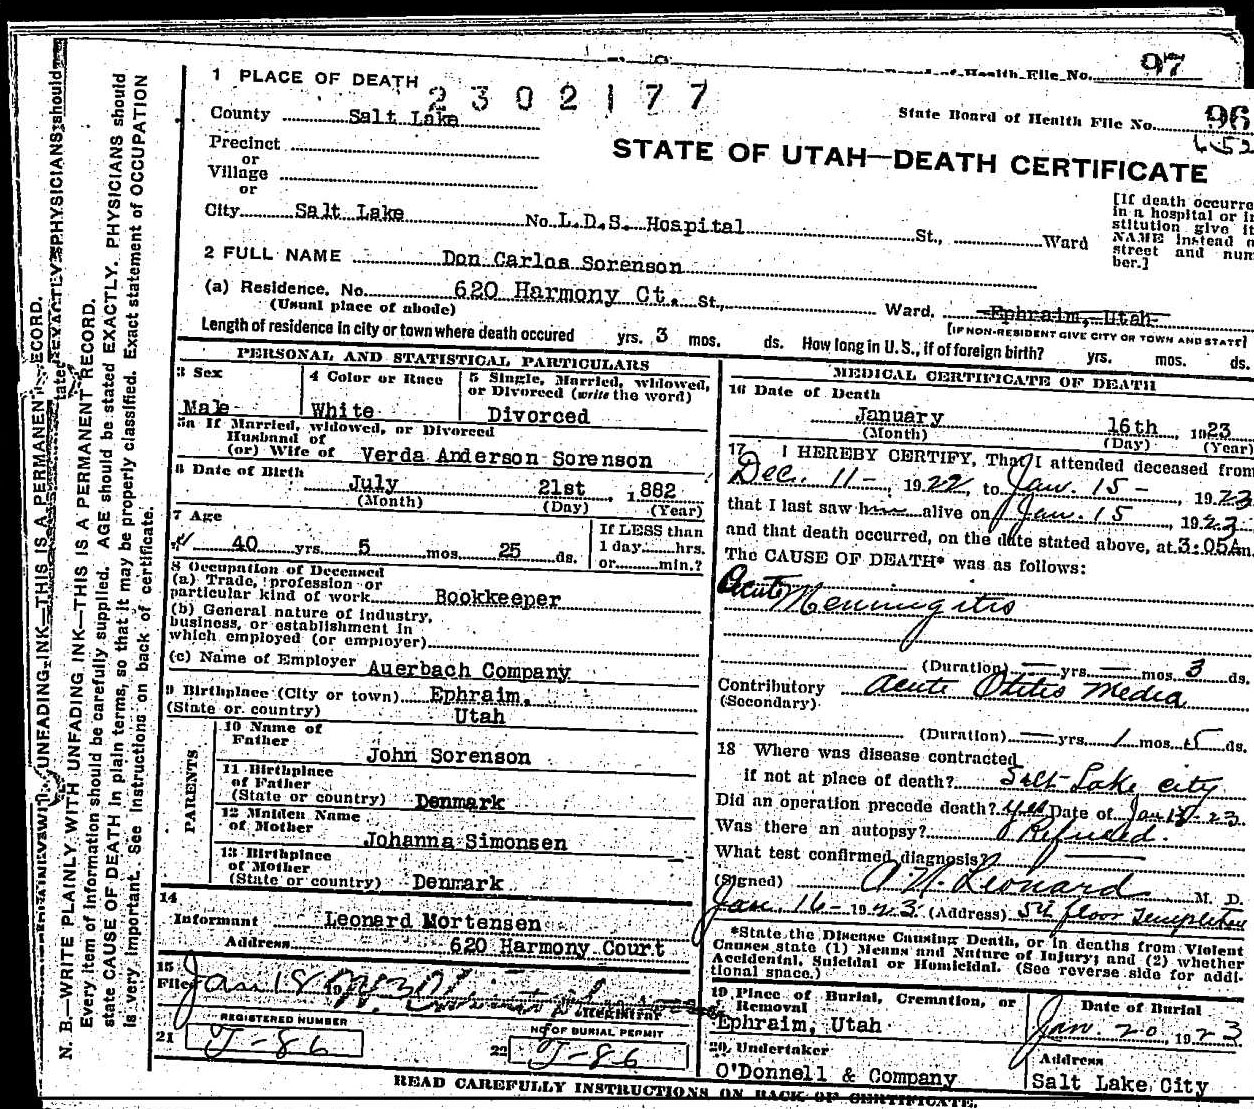 Board of Health File No. 97
1 PLACE OF DEATH 2302177
State Board of Health File No. 96
County Salt Lake
Precinct
or
Village
or
STATE OF UTAH—DEATH CERTIFICATE
City Salt Lake No. L.D.S. Hospital St., Ward
[If death occurre
in a hospital or in
stitution give it
NAME instead o
street and num
ber.]
2 FULL NAME Don Carlos Sorenson
(a) Residence. No. 620 Harmony Ct. St., Ward. Ephraim, Utah
(Usual place of abode) [IF NON-RESIDENT GIVE CITY OR TOWN AND STATE]
Length of residence in city or town where death occured yrs. 3 mos. ds. How long in U. S., if of foreign birth? yrs. mos. ds.
PERSONAL AND STATISTICAL PARTICULARS
3 Sex
Male
4 Color or Race
White
5 Single, Married, widowed,
or Divorced (write the word)
Divorced
5a If Married, widowed, or Divorced
Husband of
(or) Wife of Verda Anderson Sorenson
6 Date of Birth
July 21st, 1882
(Month) (Day) (Year)
7 Age
40 yrs. 5 mos. 25 ds.
If LESS than
1 day hrs.
or min.?
8 Occupation of Deceased
(a) Trade, profession or
particular kind of work Bookkeeper
(b) General nature of industry,
business, or establishment in
which employed (or employer)
(c) Name of Employer Auerbach Company
9 Birthplace (City or town) Ephraim,
(State or country) Utah
PARENTS
10 Name of
Father
John Sorenson
11 Birthplace
of Father
(State or country) Denmark
12 Maiden Name
of Mother
Johanna Simonsen
13 Birthplace
of Mother
(State or country) Denmark
14
Informant Leonard Mortensen
Address 620 Harmony Court
15
File Jan 18
Registrar
REGISTERED NUMBER
21 J-86
NO OF BURIAL PERMIT
22 J-86
MEDICAL CERTIFICATE OF DEATH
16 Date of Death
January 16th, 1923
(Month) (Day) (Year)
17 I HEREBY CERTIFY, That I attended deceased from
Dec. 11-, 1922, to Jan. 15-, 1923
that I last saw h alive on Jan. 15, 1923
and that death occurred, on the date stated above, at 3:05Am.
The CAUSE OF DEATH* was as follows:
Acute Menningitis
(Duration) — yrs. — mos. 3 ds.
Contributory Acute Otitis Media
(Secondary)
(Duration) — yrs. 1 mos. 5 ds.
18 Where was disease contracted
if not at place of death? Salt Lake City
Did an operation precede death? yes Date of Jan 15-23
Was there an autopsy? Refused.
What test confirmed diagnosis?
(Signed) Leonard M. D.
Jan. 16- 1923 (Address) 5th floor Templeton
*State the Disease Causing Death, or in deaths from Violent
Causes state (1) Means and Nature of Injury; and (2) whether
Accidental, Suicidal or Homicidal. (See reverse side for addi-
tional space.)
19 Place of Burial, Cremation, or
Removal
Ephraim, Utah
Date of Burial
Jan. 20, 1923
20 Undertaker
O'Donnell & Company
Address
Salt Lake City
READ CAREFULLY INSTRUCTIONS ON BACK OF CERTIFICATE.
N. B.—WRITE PLAINLY WITH UNFADING INK—THIS IS A PERMANENT RECORD.
Every item of information should be carefully supplied. AGE should be stated EXACTLY. PHYSICIANS should
state CAUSE OF DEATH in plain terms, so that it may be properly classified. Exact statement of OCCUPATION
is very important. See instructions on back of certificate.